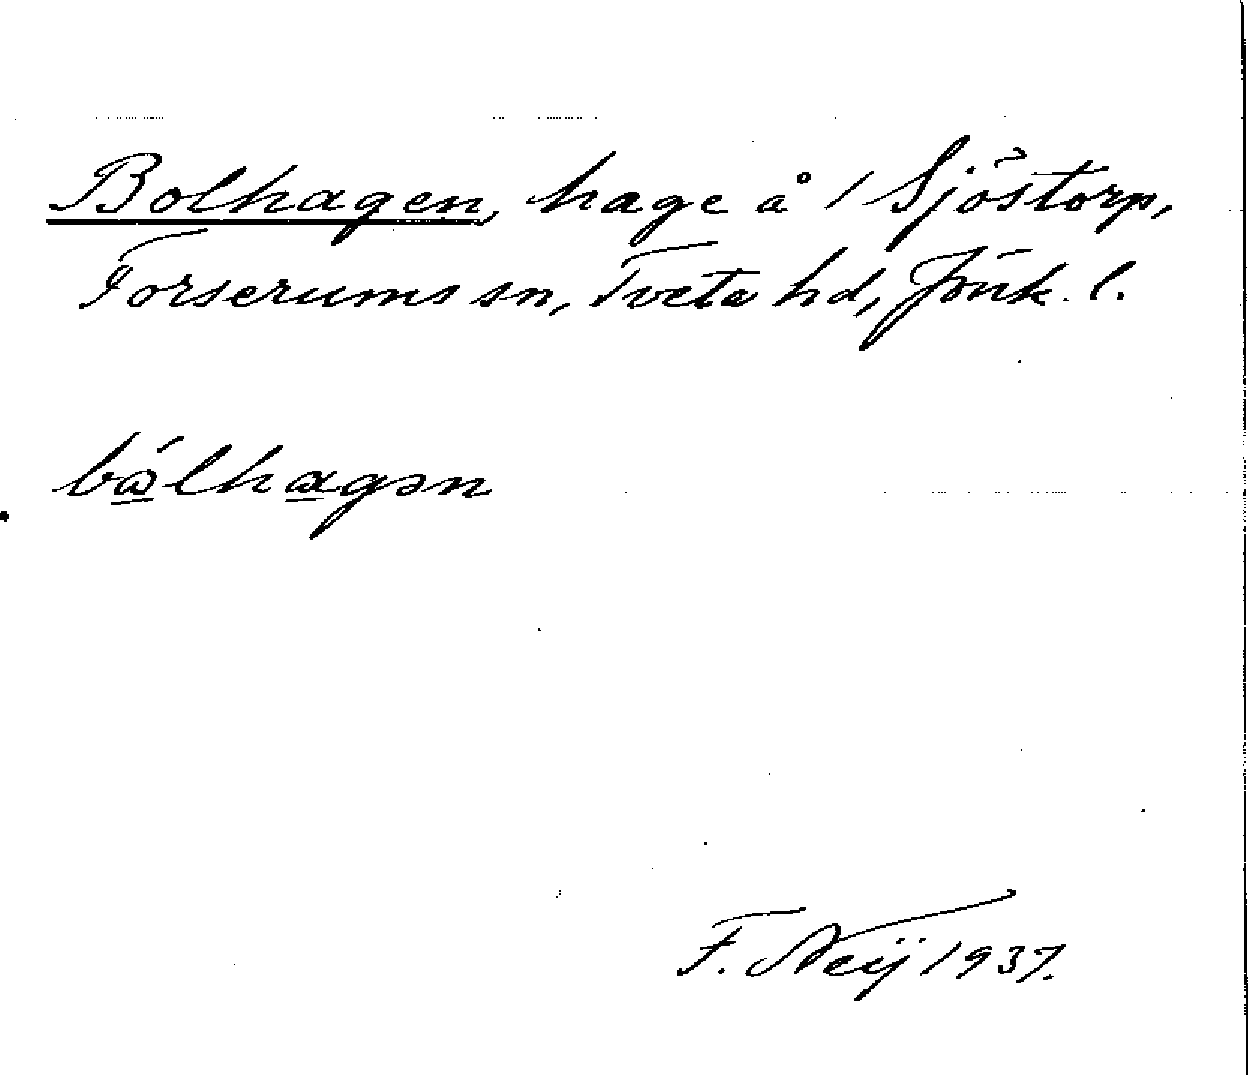 Bolhagen, hage å 1 Sjöstorp,
Forserums sn, Tveta hd, Jönk. l.
bålhagən
F. Neij 1937.